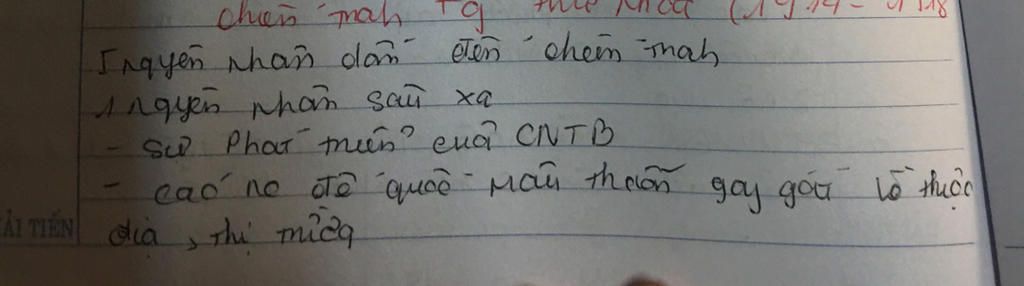 chiến tranh TG thứ nhất (1914-1918
I nguyên nhân dẫn đến chiến tranh
1 nguyên nhân sâu xa
- sự phát triển của CNTB
- các nc đế quốc mâu thuẫn gay gắt về thuộc
địa, thị trường
ẢI TIẾN